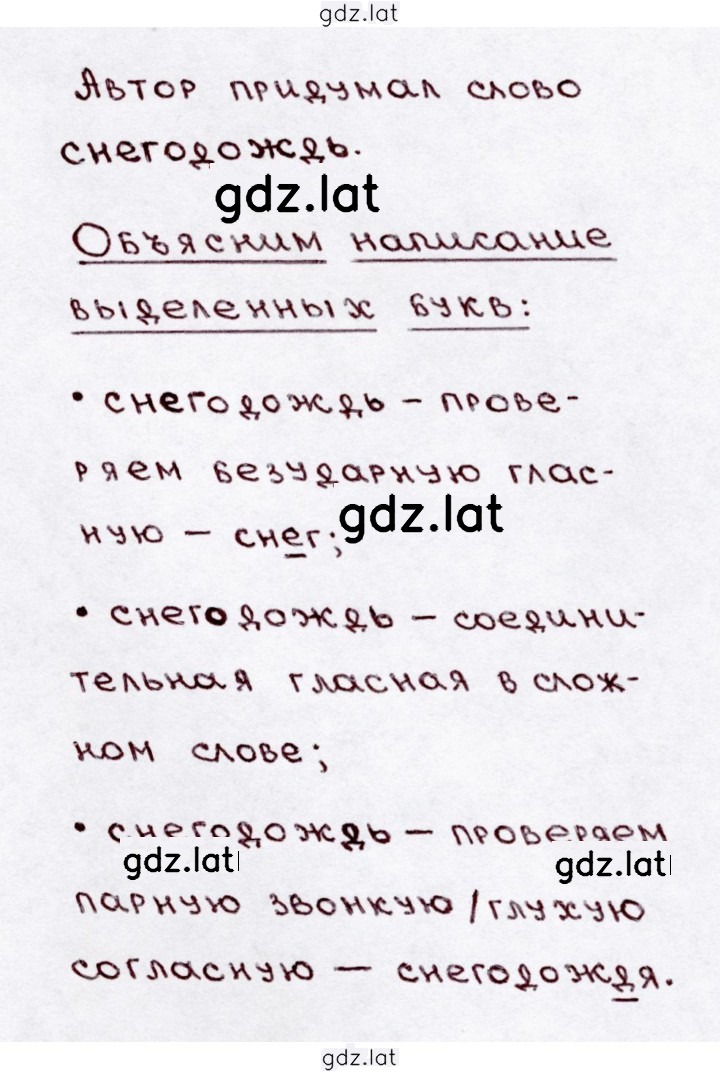 gdz.lat
Автор придумал слово
снегодождь.
gdz.lat
Объясним написание
выделенных букв:
• снегодождь – прове-
ряем безударную глас-
ную – снег;
gdz.lat
• снегодождь – соедини-
тельная гласная в слож-
ном слове;
• снегодождь – проверяем
gdz.lat gdz.lat
парную звонкую/глухую
согласную – снегодождя.
gdz.lat